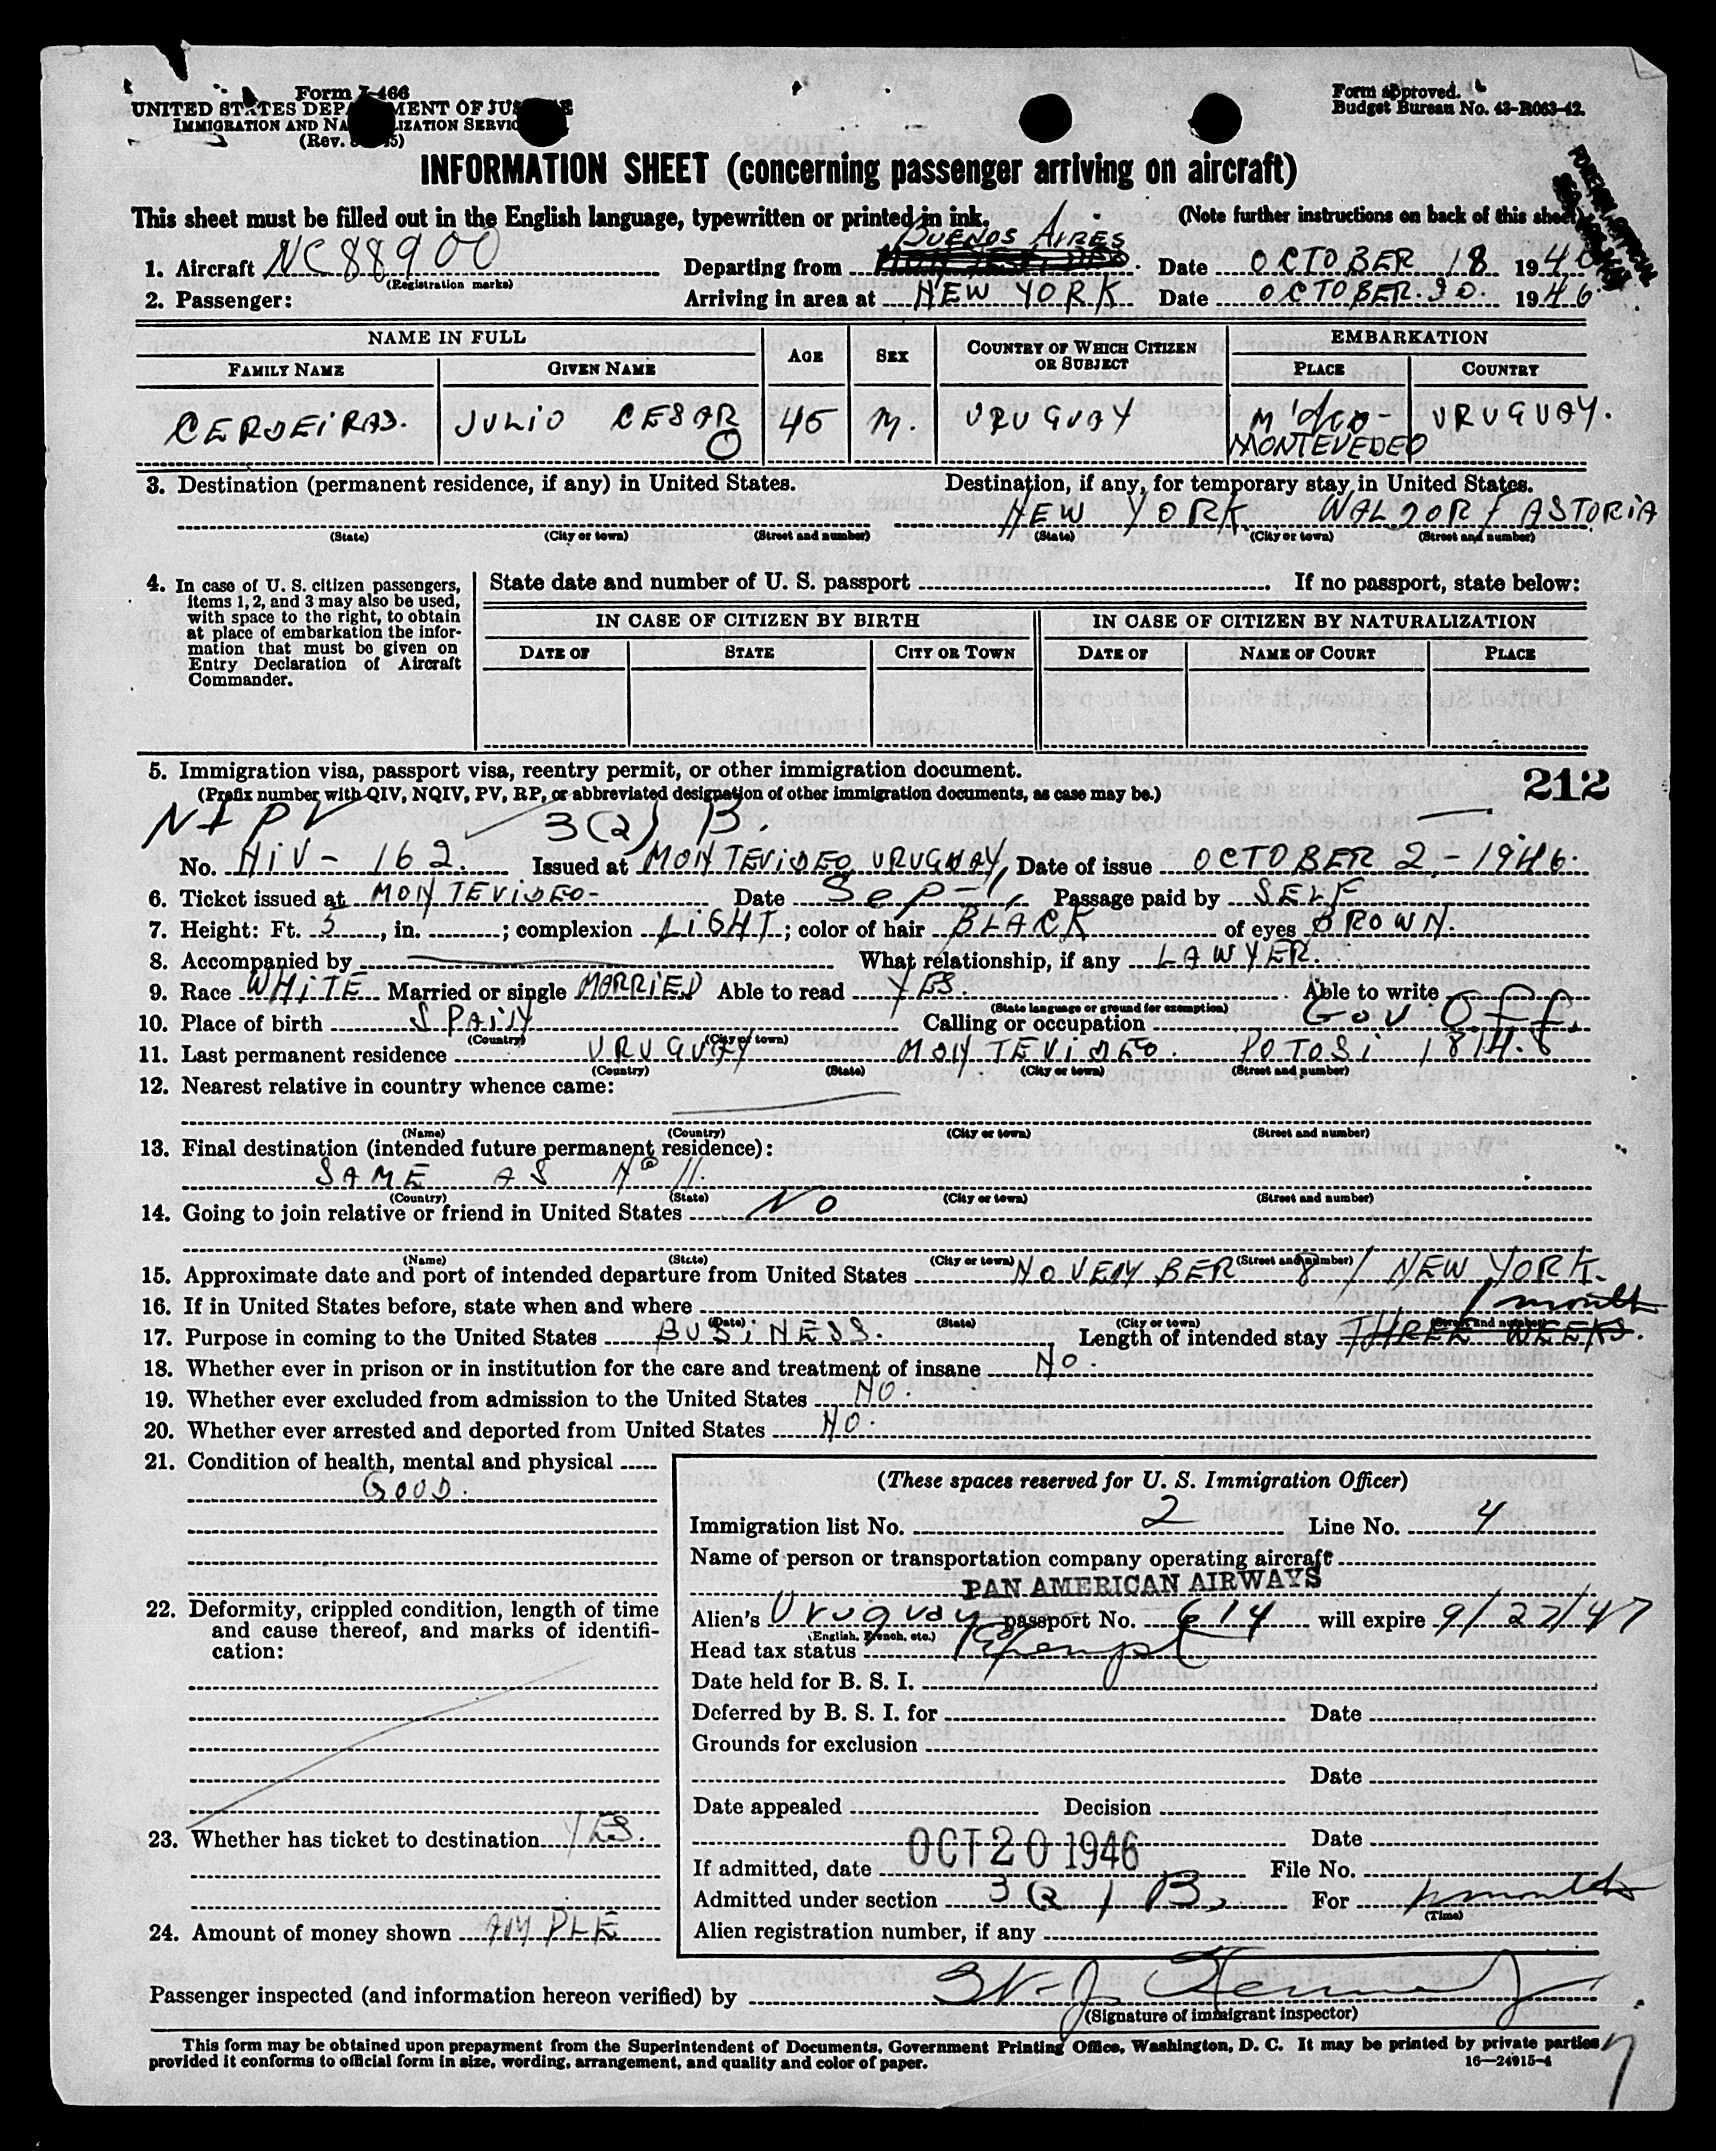 Form I-466
UNITED STATES DEPARTMENT OF JUSTICE
IMMIGRATION AND NATURALIZATION SERVICE
(Rev. 5)
Form approved.
Budget Bureau No. 43-R063-42.
INFORMATION SHEET (concerning passenger arriving on aircraft)
This sheet must be filled out in the English language, typewritten or printed in ink. (Note further instructions on back of this sheet)
BUENOS AIRES
1. Aircraft NC88900 Departing from Date OCTOBER 18 1946
(Registration marks)
2. Passenger: Arriving in area at NEW YORK Date OCTOBER 20. 1946.
NAME IN FULL AGE SEX COUNTRY OF WHICH CITIZEN OR SUBJECT EMBARKATION
FAMILY NAME GIVEN NAME PLACE COUNTRY
CERDEIRAS. JULIO CESAR 45 M. URUGUAY M'deo- URUGUAY.
O MONTEVEDEO
3. Destination (permanent residence, if any) in United States. Destination, if any, for temporary stay in United States.
NEW YORK. WALDORF ASTORIA
(State) (City or town) (Street and number) (State) (City or town) (Street and number)
4. In case of U. S. citizen passengers, items 1, 2, and 3 may also be used, with space to the right, to obtain at place of embarkation the information that must be given on Entry Declaration of Aircraft Commander.
State date and number of U. S. passport If no passport, state below:
IN CASE OF CITIZEN BY BIRTH IN CASE OF CITIZEN BY NATURALIZATION
DATE OF STATE CITY OR TOWN DATE OF NAME OF COURT PLACE
5. Immigration visa, passport visa, reentry permit, or other immigration document. 212
(Prefix number with QIV, NQIV, PV, RP, or abbreviated designation of other immigration documents, as case may be.)
NIPV 3(2) B.
No. NIV- 162. Issued at MONTEVIDEO URUGUAY, Date of issue OCTOBER 2 - 1946.
6. Ticket issued at MONTEVIDEO- Date Sep- Passage paid by SELF
7. Height: Ft. 5, in. ; complexion LIGHT; color of hair BLACK of eyes BROWN.
8. Accompanied by What relationship, if any LAWYER.
9. Race WHITE Married or single MARRIED Able to read YES. Able to write
(State language or ground for exemption)
10. Place of birth SPAIN Calling or occupation Gov Off.
(Country) (City or town)
11. Last permanent residence URUGUAY MONTEVIDEO. POTOSI 1814.
(Country) (State) (City or town) (Street and number)
12. Nearest relative in country whence came:
(Name) (Country) (City or town) (Street and number)
13. Final destination (intended future permanent residence):
SAME AS Nº 11.
(Country) (State) (City or town) (Street and number)
14. Going to join relative or friend in United States NO
(Name) (State) (City or town) (Street and number)
15. Approximate date and port of intended departure from United States NOVEMBER 8 / NEW YORK.
16. If in United States before, state when and where
(Date) (State) (City or town) (Street and number)
1 month
17. Purpose in coming to the United States BUSINESS. Length of intended stay THREE WEEKS.
18. Whether ever in prison or in institution for the care and treatment of insane NO.
19. Whether ever excluded from admission to the United States NO.
20. Whether ever arrested and deported from United States NO.
21. Condition of health, mental and physical
GOOD.
22. Deformity, crippled condition, length of time and cause thereof, and marks of identification:
23. Whether has ticket to destination YES.
24. Amount of money shown AMPLE
(These spaces reserved for U. S. Immigration Officer)
Immigration list No. 2 Line No. 4
Name of person or transportation company operating aircraft
PAN AMERICAN AIRWAYS
Alien's Uruguay passport No. 614 will expire 9/27/47
(English, French, etc.)
Head tax status Exempt
Date held for B. S. I.
Deferred by B. S. I. for Date
Grounds for exclusion
Date
Date appealed Decision
Date
If admitted, date OCT 20 1946 File No.
Admitted under section 3(2) B, For months
(Time)
Alien registration number, if any
Passenger inspected (and information hereon verified) by
(Signature of immigrant inspector)
This form may be obtained upon prepayment from the Superintendent of Documents, Government Printing Office, Washington, D. C. It may be printed by private parties
provided it conforms to official form in size, wording, arrangement, and quality and color of paper. 16—24915-4